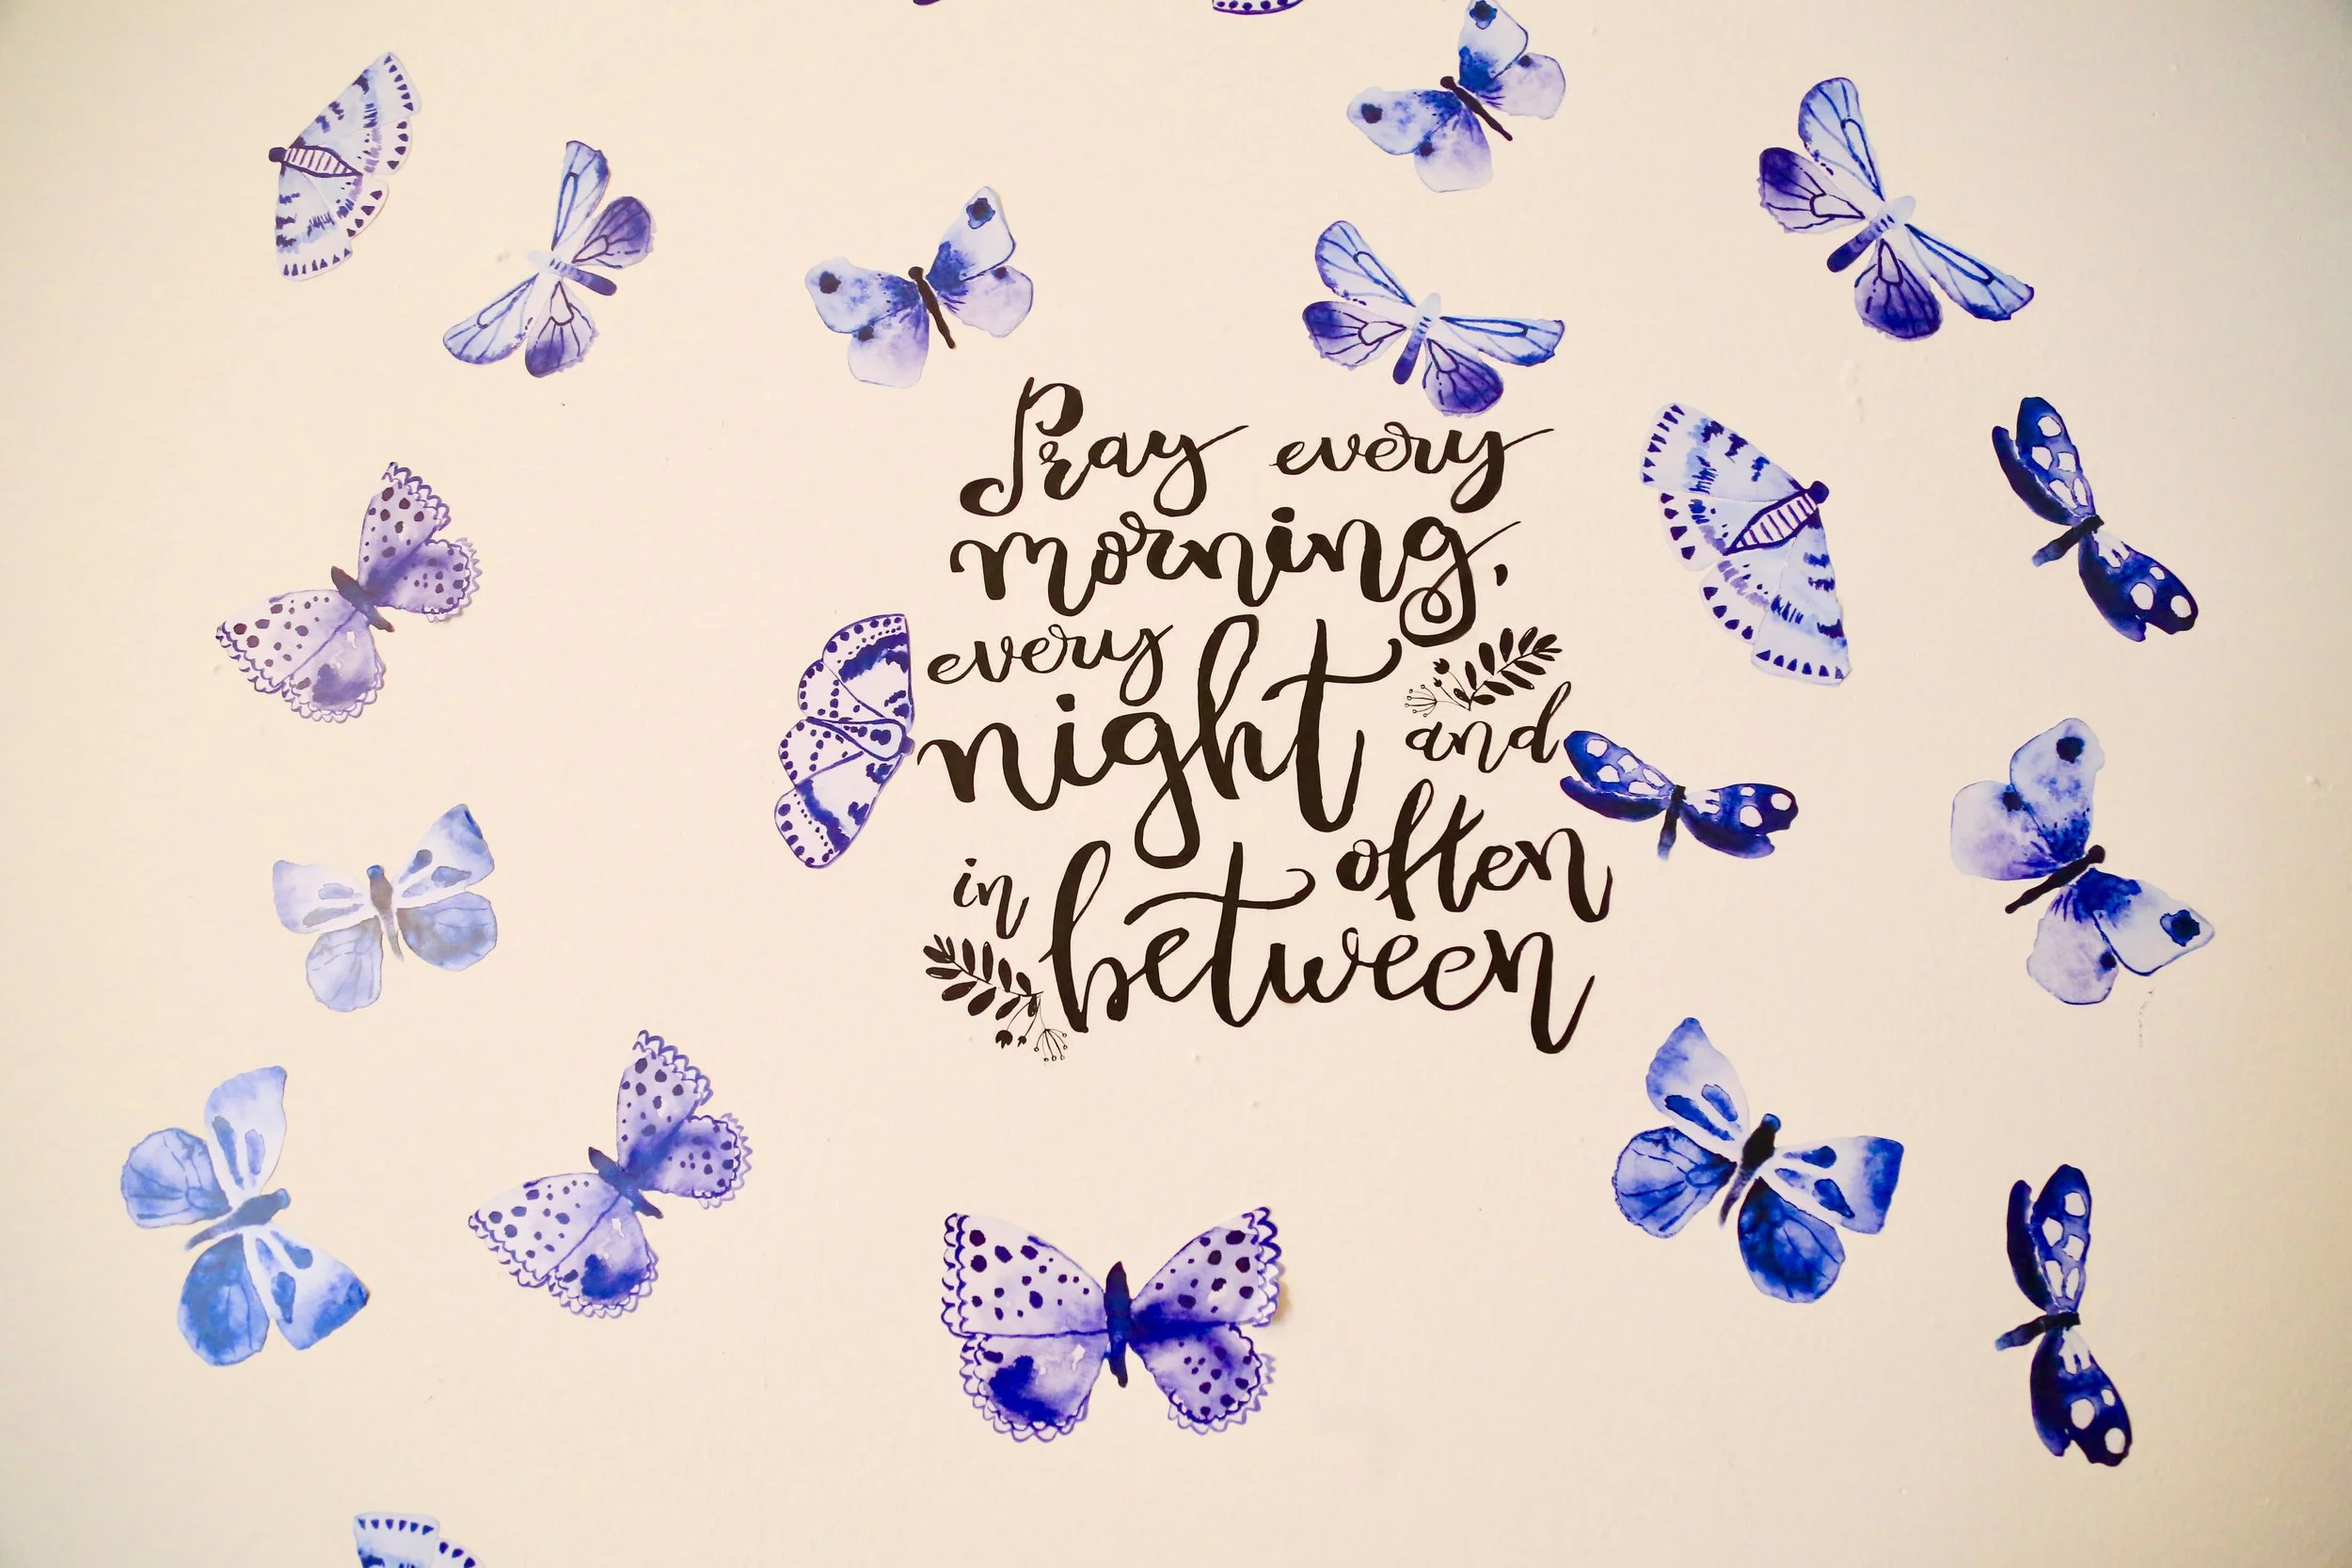 Pray every
morning,
every
night and
often
in between